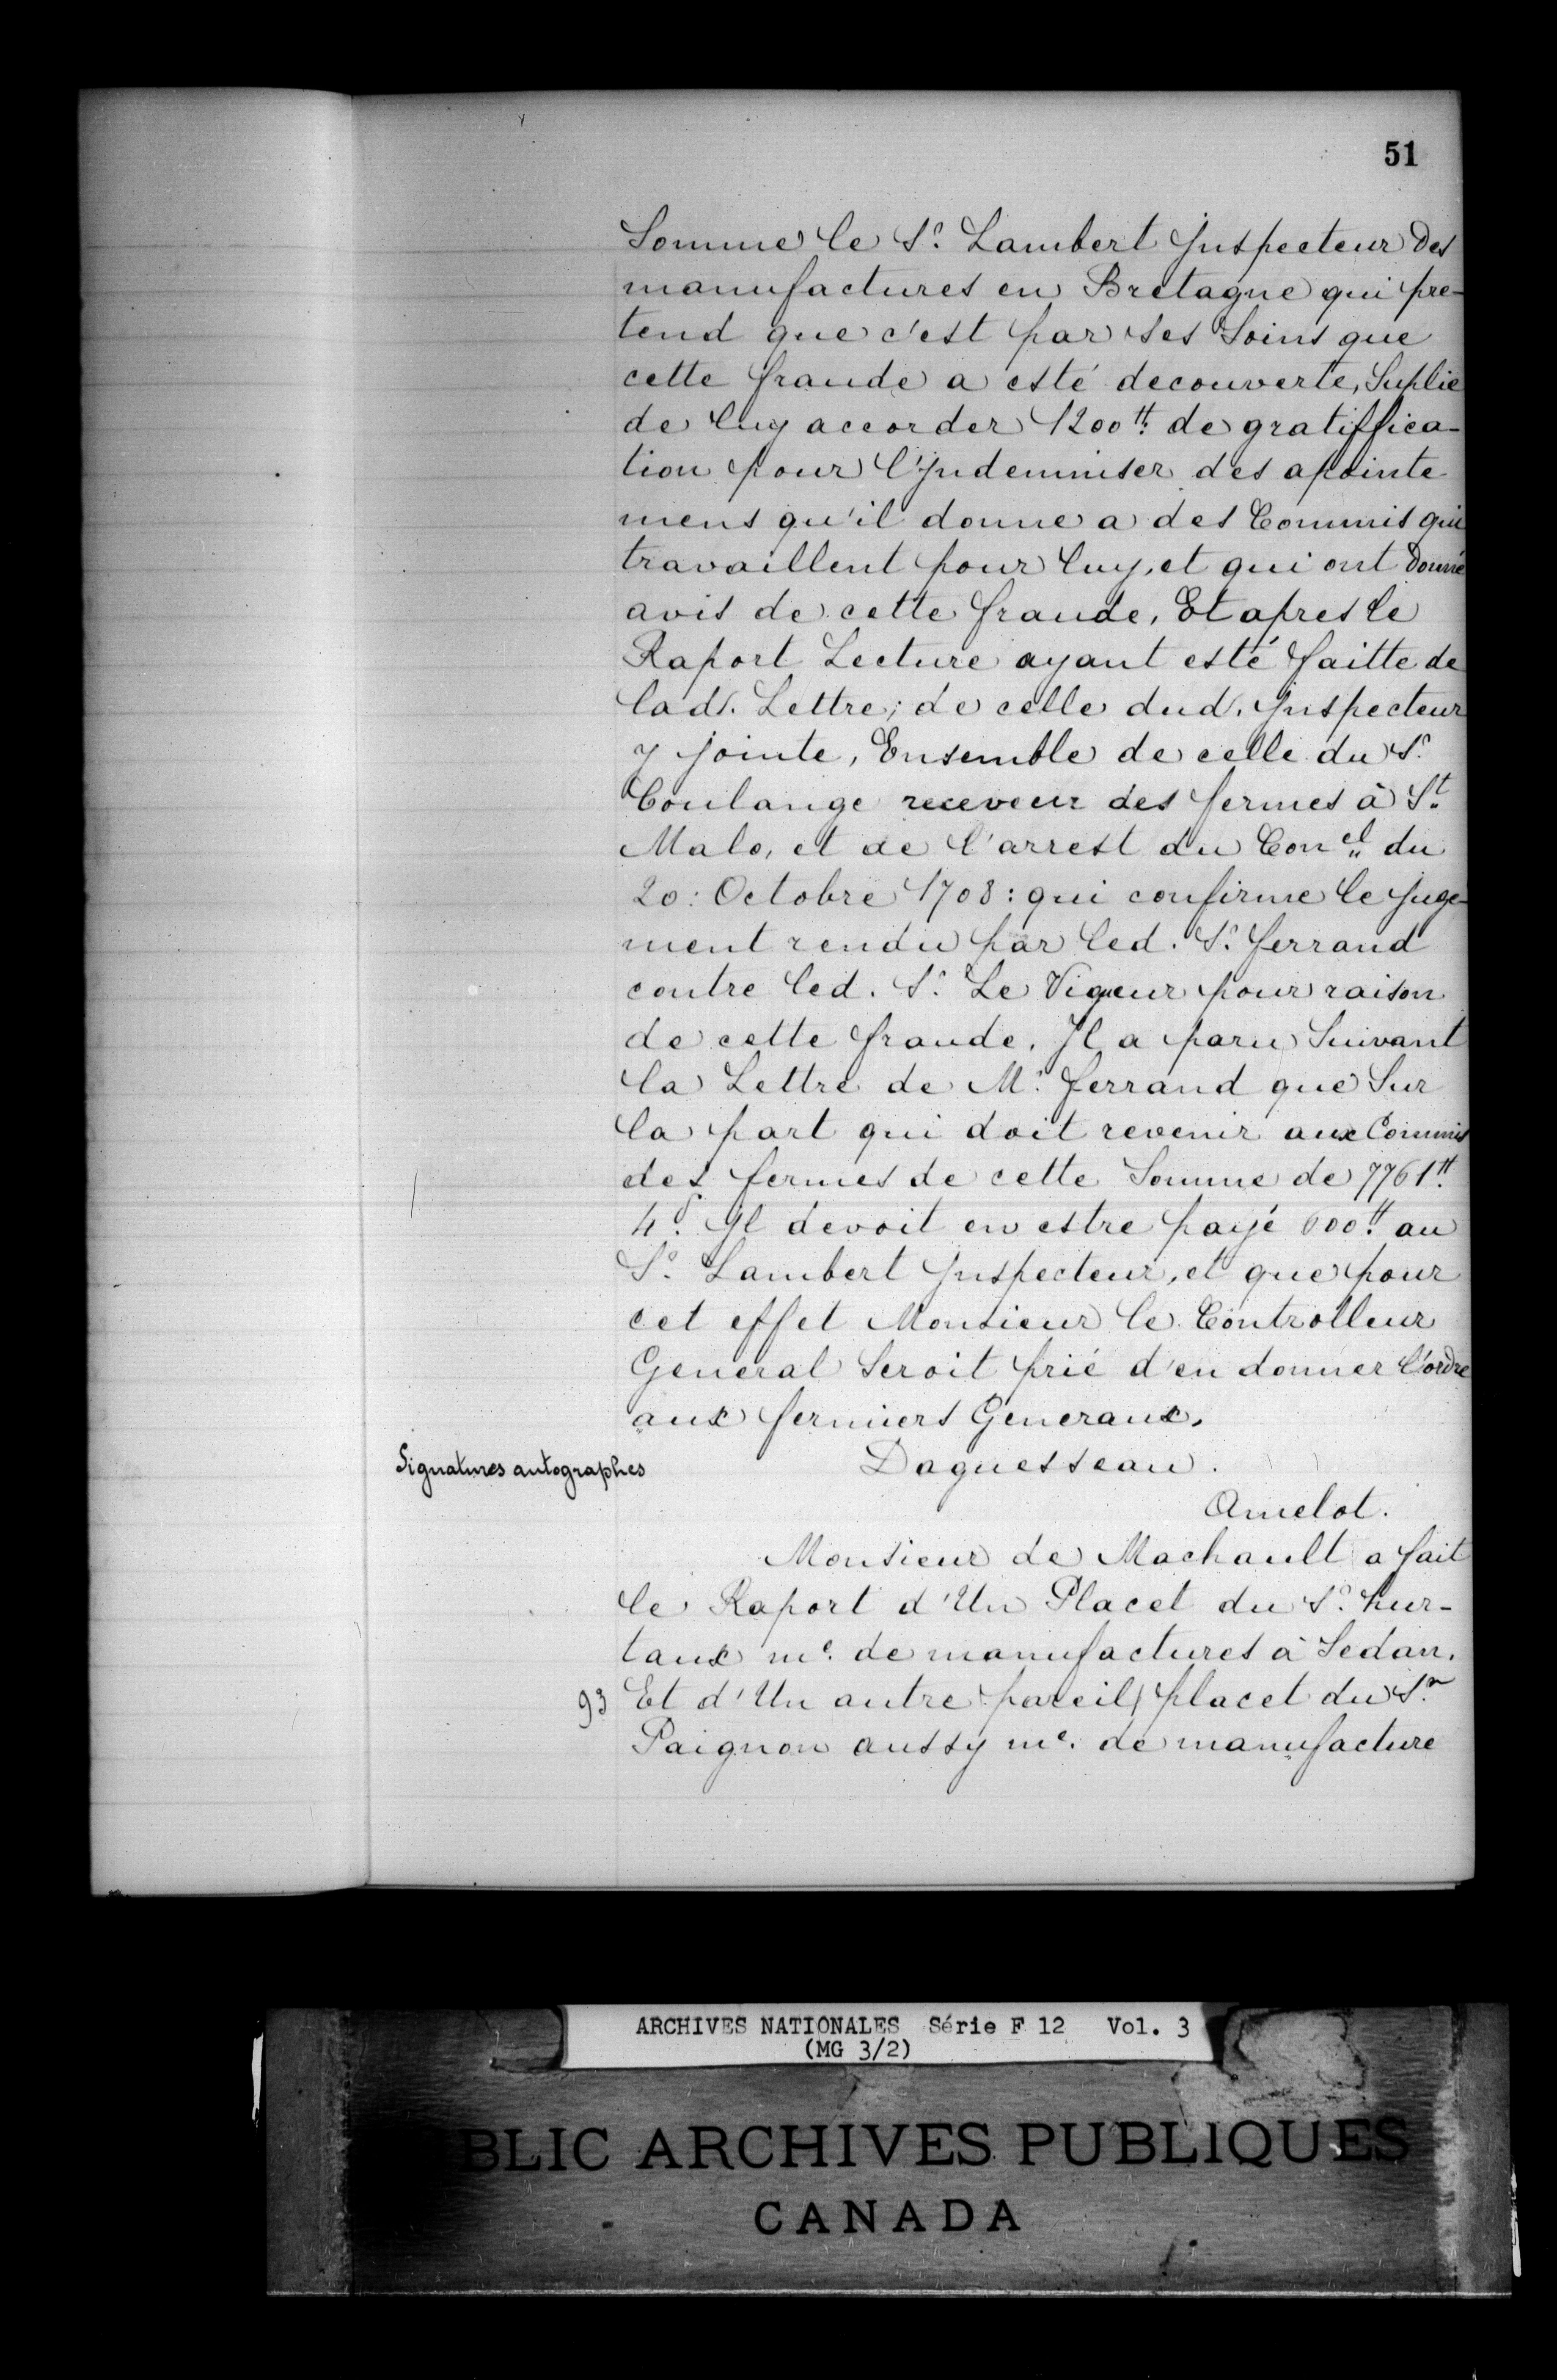 51
Somme le Sr. Lambert Inspecteur des
manufactures en Bretagne qui pre-
tend que c'est par ses Soins que
cette fraude a esté decouverte, Suplie
de luy accorder 1200tt. de gratiffica-
tion pour l'Indemniser des apointe
mens qu'il donne a des Commis qui
travaillent pour luy, et qui ont donné
avis de cette fraude, Et apres le
Raport Lecture ayant esté faitte de
lad. Lettre, de celle dud. Inspecteur
y jointe, Ensemble de celle du Sr.
Coulange receveur des fermes à St.
Malo, et de l'arrest du Con.el du
20: Octobre 1708: qui confirme le Juge-
ment rendu par led. Sr. ferrand
contre led. Sr. Le Vigeur pour raison
de cette fraude. Il a paru Suivant
la Lettre de Mr. ferrand que Sur
la part qui doit revenir aux Commis
des fermes de cette Somme de 7761tt.
4s. Il devoit en estre payé 600tt. au
Sr. Lambert Inspecteur, et que pour
cet effet Monsieur le Controlleur
General Seroit prié d'en donner l'ordre
aux fermiers Generaux.
Signatures autographes Daguesseau.
Amelot.
Monsieur de Machault a fait
le Raport d'Un Placet du Sr. hur-
taux me. de manufactures à Sedan.
93 Et d'Un autre pareil placet du Sr.
Paignon aussy me. de manufacture
ARCHIVES NATIONALES Série F 12 Vol. 3
(MG 3/2)
BLIC ARCHIVES PUBLIQUES
CANADA